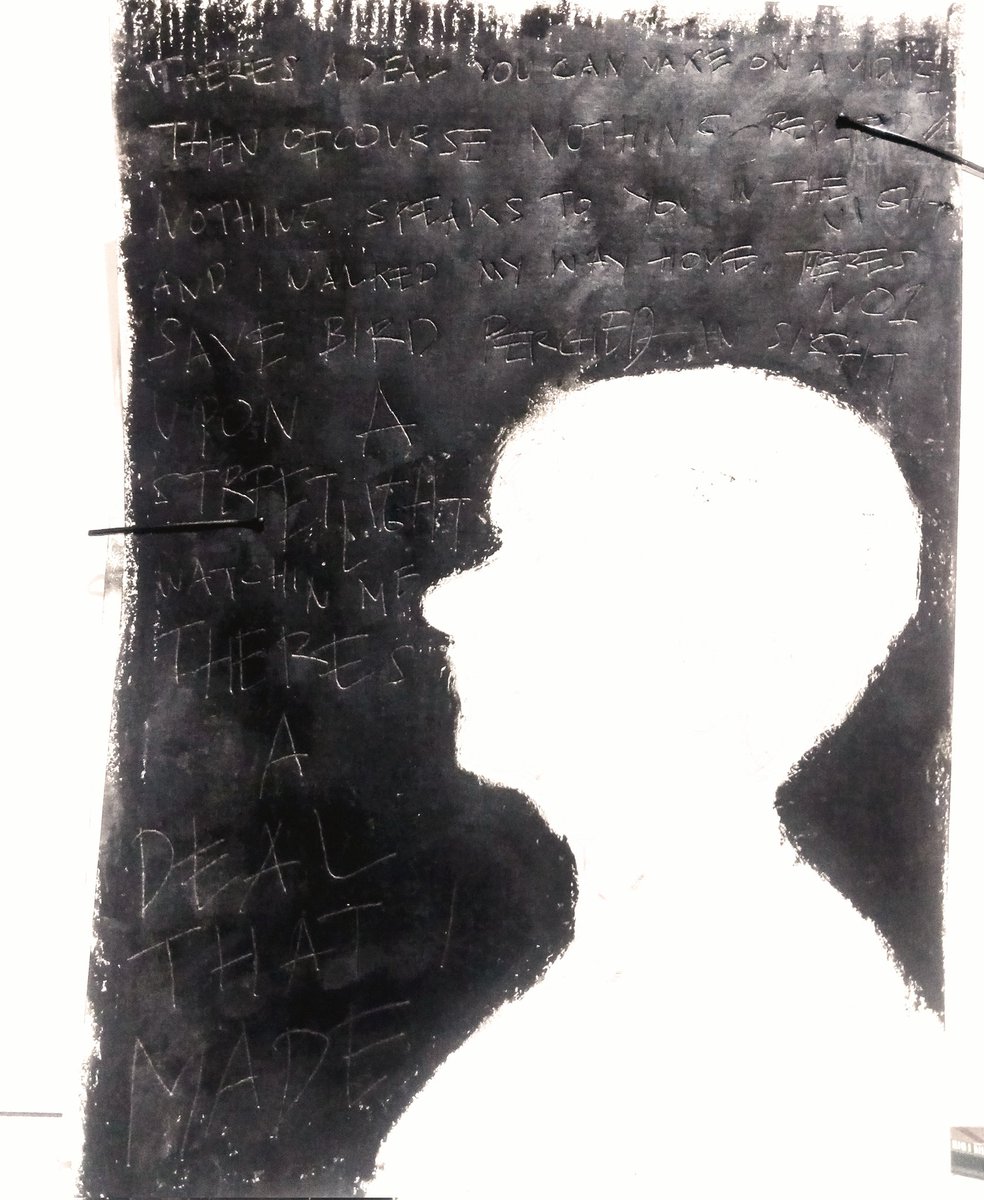 THERES A DEAL YOU CAN MAKE ON A
THEN OFCOURSE NOTHING
NOTHING SPEAKS TO YOU IN THE NIGHT
AND I WALKED MY WAY HOME. THERES
NO1
SAVE BIRD PERCHED IN SIGHT
UPON A
STREET LIGHT
WATCHIN ME
THERES
A
DEAL
THAT I
MADE